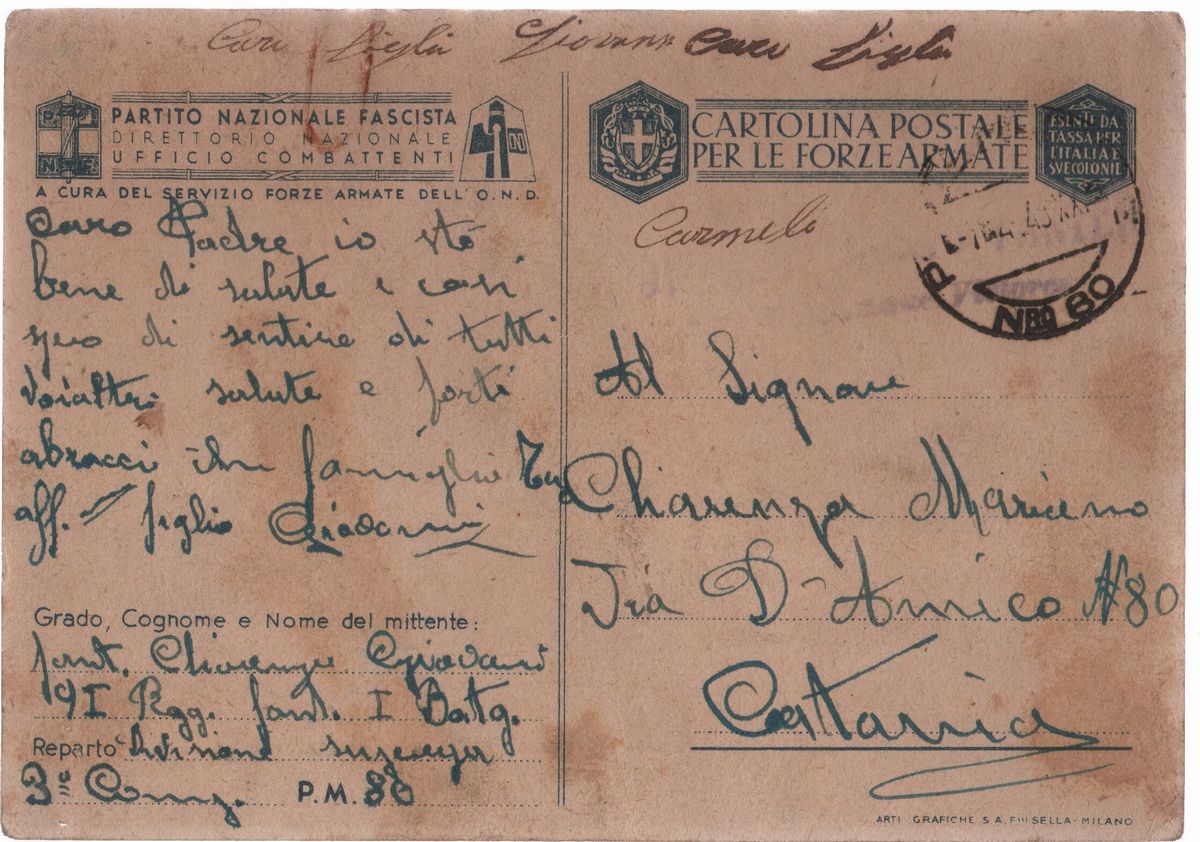 Caro figlio Giovanni Caro figlio
P N F
PARTITO NAZIONALE FASCISTA
DIRETTORIO NAZIONALE
UFFICIO COMBATTENTI
A CURA DEL SERVIZIO FORZE ARMATE DELL'O.N.D.
Caro Padre io stó
bene di salute e cosi
spero di sentire di tutti
voialtri salute e forti
abracci in famiglia Tuo
aff. figlio Giovanni
Grado, Cognome e Nome del mittente:
fant. Chiarenza Giovanni
91 Rgg. fant. I Batg.
Reparto Divisione
3ª Comp. P.M. 80
CARTOLINA POSTALE
PER LE FORZE ARMATE
ESENTE DA
TASSA PER
L'ITALIA E
SVE COLONIE
Carmelo
N RO 80
Al Signore
Chiarenza Mariano
Via D'Amico N 80
Catania
ARTI GRAFICHE S.A. Flli SELLA - MILANO